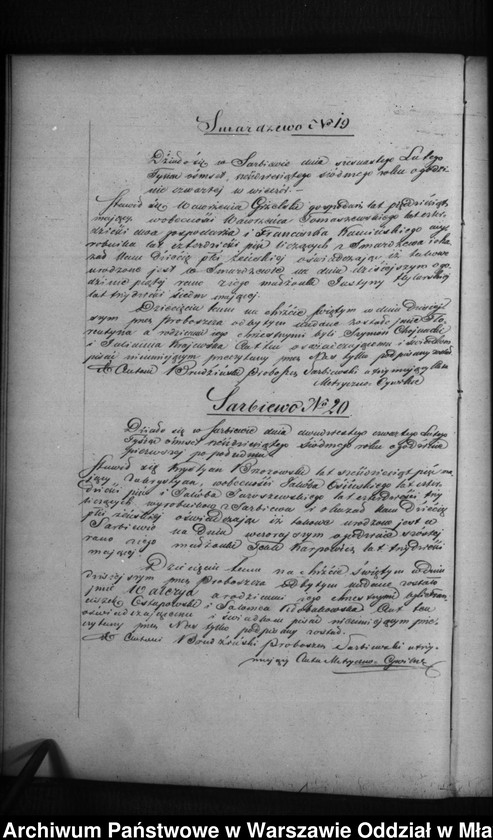 Smardzewo No 19
Działo się w Sarbiewie dnia siewnastego Lutego
Tysiąc ośmset sześćdziesiątego siódmego roku o godzi-
nie czwartej w wieczór.
Stawił się Wawrzeniec gospodarz lat
mający w obecności Wawrzeńca Tomaszewskiego lat czter-
dzieści dwa gospodarza i Franciszka Kamińskiego wy-
robnika lat czterdzieści pięć liczących z Smardzewa i oka-
zał Nam Dziecię płci żeńskiej oświadczając iż takowe
urodzone jest w Smardzewie na dniu dzisiejszym o go-
dzinie piątej rano z jego małżonki Justyny
lat trzydzieści siedm mającej.
Dziecięciu temu na chrzcie świętym w dniu dzisiej-
szym przez Proboszcza odbytym nadane zostało imię Flo-
rentyna a rodzicami jego chrzestnymi byli Szymon Chojnacki
i Salomea Krajewska Akt ten oświadczającemu i świadkom
pisać nieumiejącym przeczytany przez Nas tylko podpisany został
X. Antoni Proboszcz Sarbiewski utrzymujący Akta
Metryczno Cywilne
Sarbiewo No 20
Działo się w Sarbiewie dnia dwudziestego czwartego Lutego
Tysiąc ośmset sześćdziesiątego siódmego roku o godzinie
pierwszej po południu
Stawił się Krystyan Brzozowski lat sześćdziesiąt pięć ma-
jący zakrystyan, w obecności Jakóba Osieckiego lat czter-
dzieści pięć i Jakóba Jaroszewskiego lat czterdzieści trzy
liczących wyrobników z Sarbiewa i okazał Nam Dziecię
płci żeńskiej oświadczając iż takowe urodzone jest w
Sarbiewie na dniu wczorajszym o godzinie szóstej
rano z jego małżonki Tekli Karpowicz lat trzydzieści
mającej
Dziecięciu temu na chrzcie świętym w dniu
dzisiejszym przez Proboszcza odbytym nadane zostało
imię a rodzicami jego chrzestnymi byli Fran-
ciszek Ostapowski i Salomea Akt ten
oświadczającemu i świadkom pisać nieumiejącym prze-
czytany przez Nas tylko podpisany został.
X. Antoni Proboszcz Sarbiewski utrzy-
mujący Akta Metryczno-Cywilne
Archiwum Państwowe w Warszawie Oddział w Mła